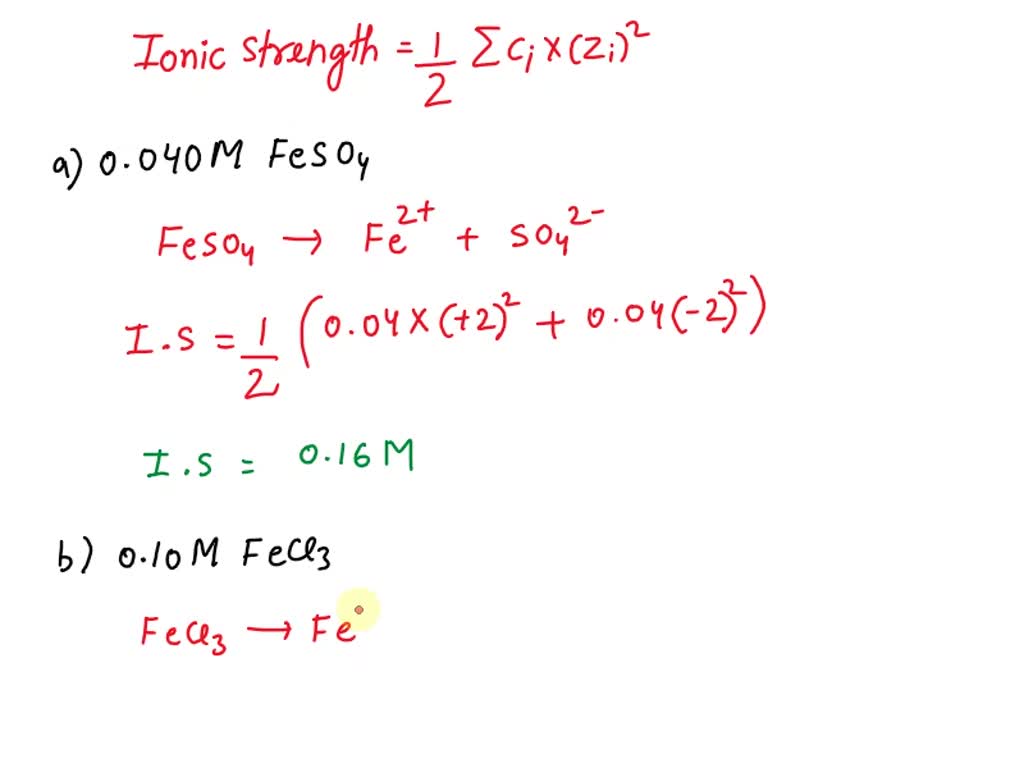 Ionic strength = 1/2 Σ Ci × (Zi)²
a) 0.040 M FeSO₄
FeSO₄ → Fe²⁺ + SO₄²⁻
I.S = 1/2 (0.04 × (+2)² + 0.04 (-2)²)
I.S = 0.16 M
b) 0.10 M FeCl₃
FeCl₃ → Fe